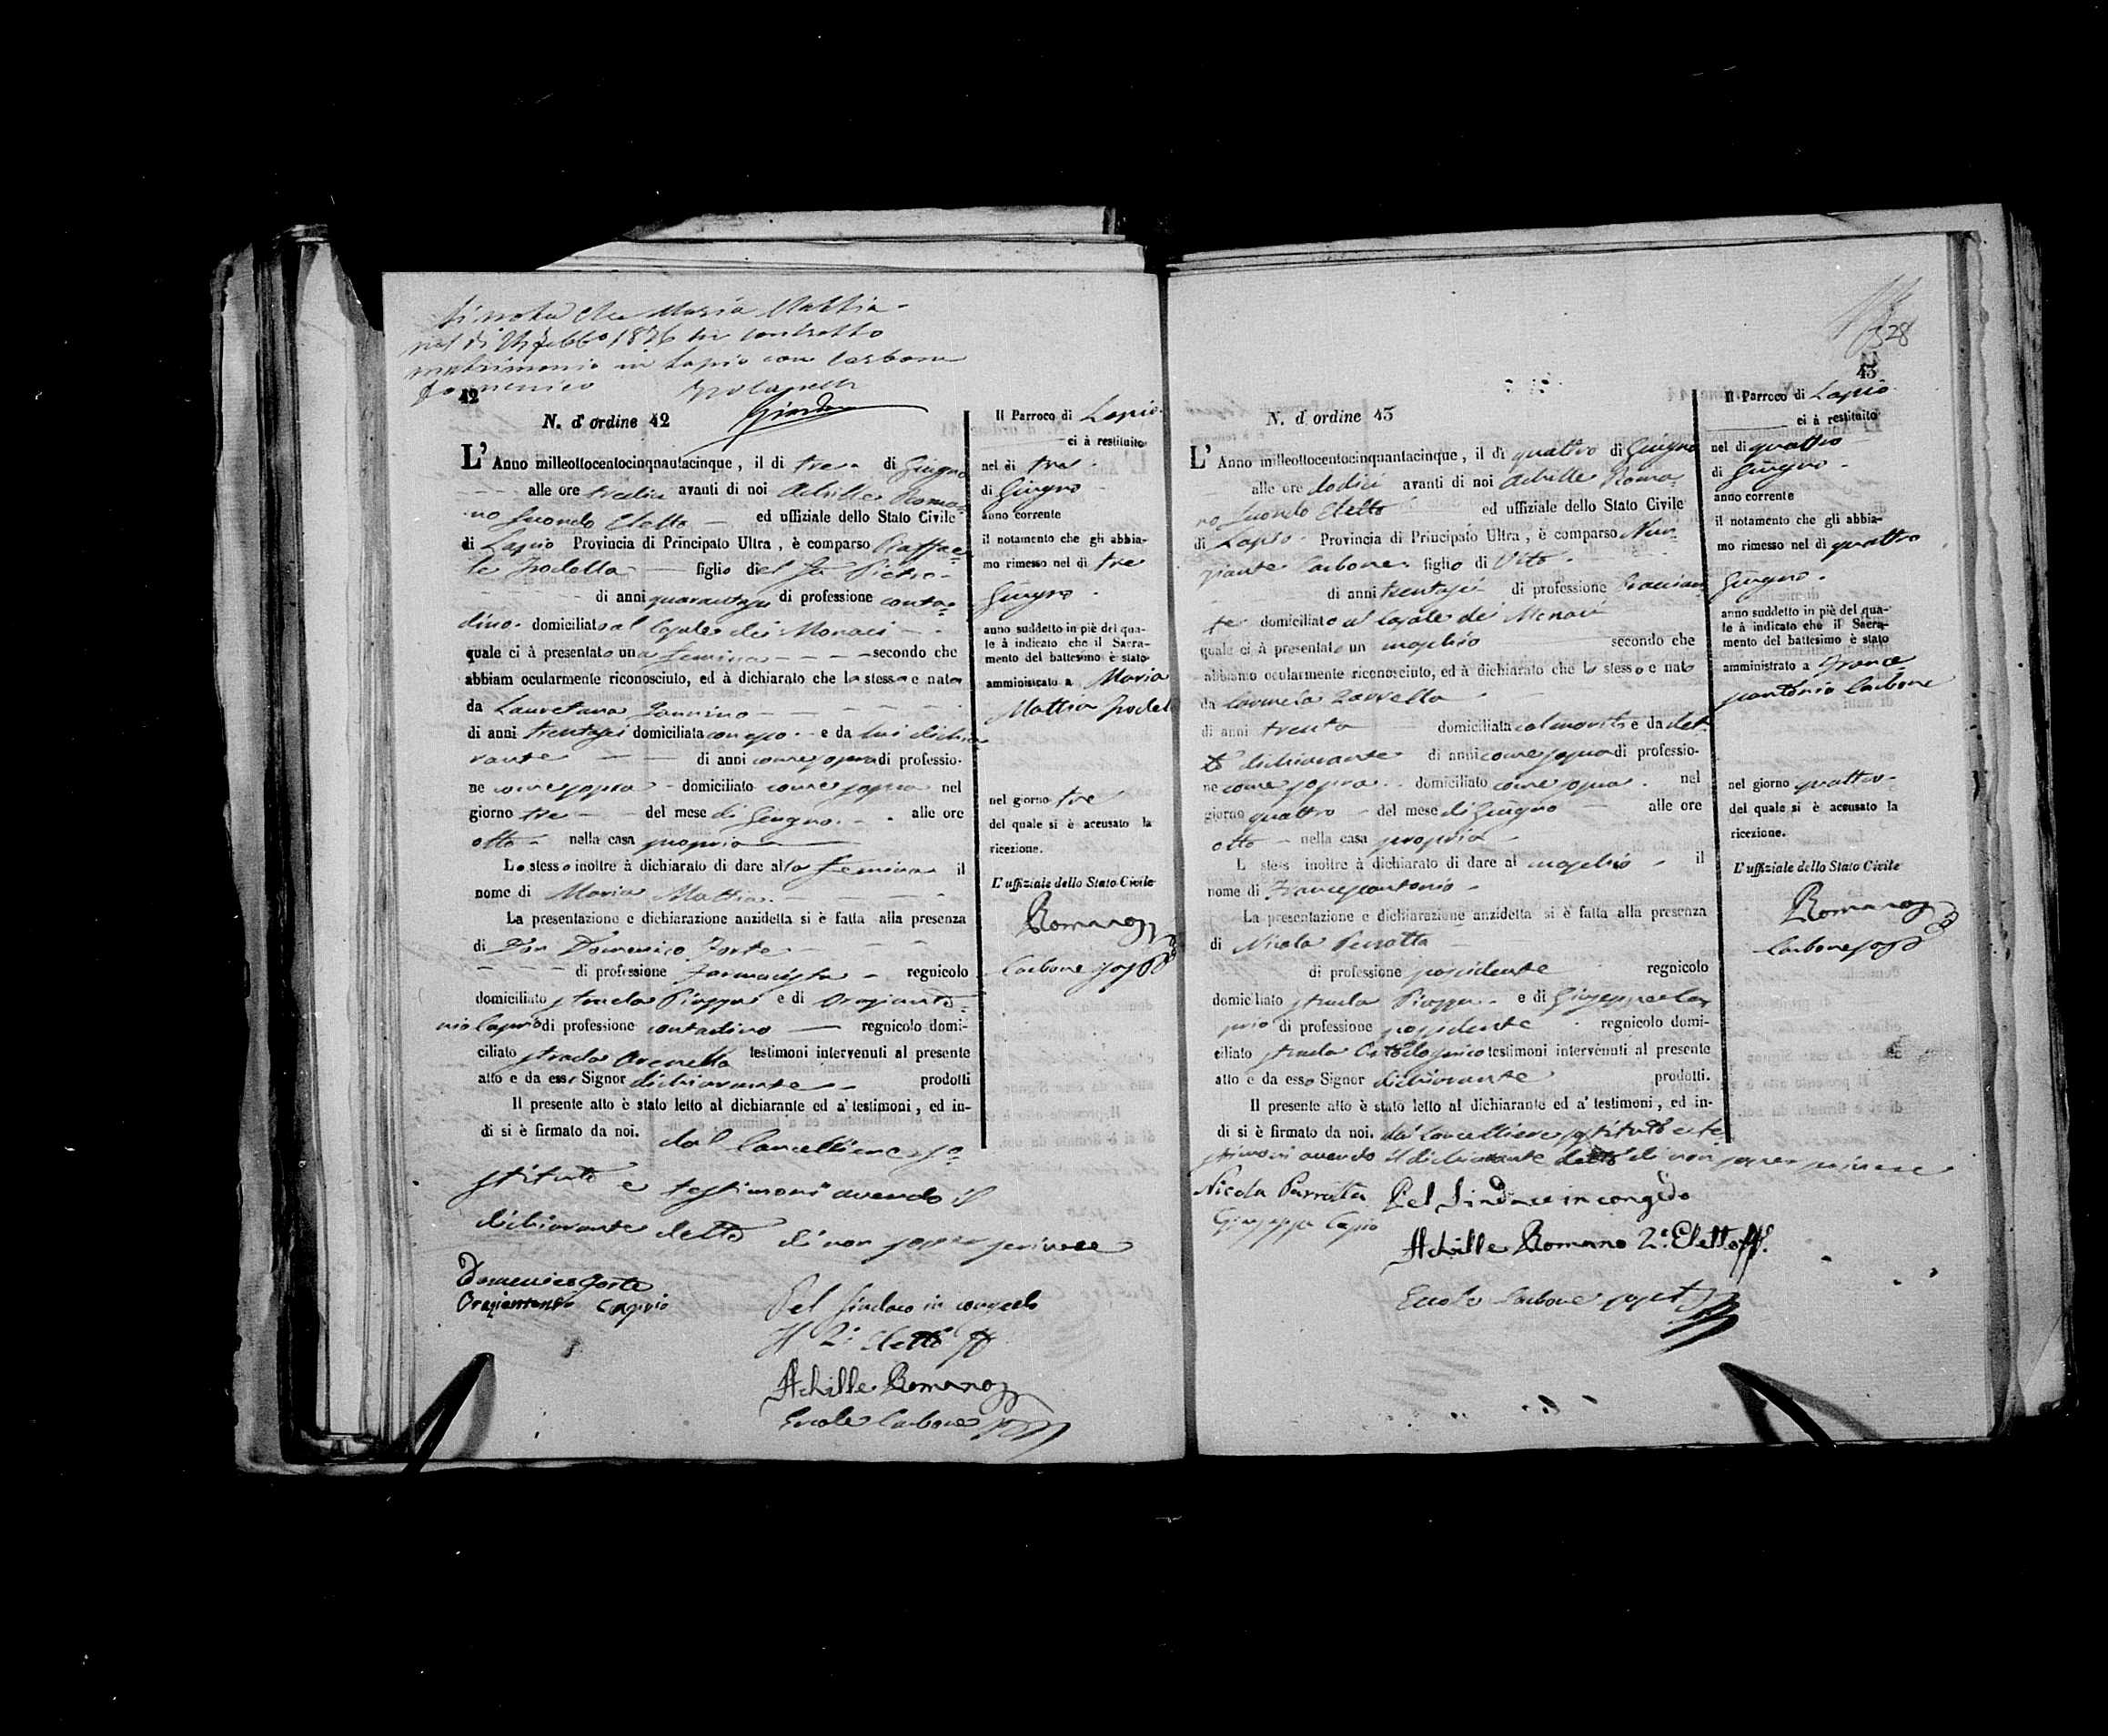 Si nota che Maria Mattia
nel dì 1876 ha contratto
matrimonio in Lapio con Carbone
Domenico
42
N. d' ordine 42
L' Anno milleottocentocinquantacinque, il dì tre di Giugno
alle ore tredici avanti di noi Achille Roma-
no secondo Eletto ed uffiziale dello Stato Civile
di Lapio Provincia di Principato Ultra, è comparso Raffae-
le figlio del fu Pietro
di anni quarantasei di professione conta-
dino domiciliato al Casale dei Monaci
quale ci à presentato una femina secondo che
abbiam ocularmente riconosciuto, ed à dichiarato che la stessa e nata
da Lauretana Iannino
di anni trentasei domiciliata con esso e da lui dichia-
rante di anni come sopra di professio-
ne come sopra domiciliato come sopra nel
giorno tre del mese di Giugno alle ore
otto nella casa propria
Lo stesso inoltre à dichiarato di dare alla femina il
nome di Maria Mattia
La presentazione e dichiarazione anzidetta si è fatta alla presenza
di Don Domenico Forte
di professione Farmacista regnicolo
domiciliato strada Piazza e di Orazianto-
nio Caprio di professione contadino regnicolo domi-
ciliato strada Arenella testimoni intervenuti al presente
atto e da esso Signor dichiarante prodotti
Il presente atto è stato letto al dichiarante ed a' testimoni, ed in-
di si è firmato da noi. dal Cancelliere so-
stituto e testimoni avendo il
dichiarante detto di non saper scrivere
Domenico Forte
Oraziantonio Caprio
Pel Sindaco in congedo
Il 2º eletto ff
Achille Romano
Ercole Carbone
Il Parroco di Lapio
ci à restituito
nel dì tre
di Giugno
anno corrente
il notamento che gli abbia-
mo rimesso nel dì tre
Giugno
anno suddetto in piè del qua-
le à indicato che il Sacra-
mento del battesimo è stato
amministrato a Maria
Mattia
nel giorno tre
del quale si è accusato la
ricezione.
L' uffiziale dello Stato Civile
Romano
Carbone
328
43
N. d' ordine 43
L' Anno milleottocentocinquantacinque, il dì quattro di Giugno
alle ore dodici avanti di noi Achille Roma-
no secondo Eletto ed uffiziale dello Stato Civile
di Lapio Provincia di Principato Ultra, è comparso Nun-
ziante Carbone figlio di Vito
di anni trentasei di professione
domiciliato al Casale dei Monaci
quale ci à presentato un maschio secondo che
abbiamo ocularmente riconosciuto, ed à dichiarato che lo stesso e nato
da Carmela Zarrella
di anni trenta domiciliata col marito e da det-
to dichiarante di anni come sopra di professio-
ne come sopra domiciliato come sopra nel
giorno quattro del mese di Giugno alle ore
otto nella casa propria
L stess inoltre à dichiarato di dare al maschio il
nome di Francescantonio
La presentazione e dichiarazione anzidetta si è fatta alla presenza
di Nicola Perrotta
di professione possidente regnicolo
domiciliato strada Piazza e di Giuseppe Ca-
prio di professione possidente regnicolo domi-
ciliato strada testimoni intervenuti al presente
atto e da esso Signor dichiarante prodotti.
Il presente atto è stato letto al dichiarante ed a' testimoni, ed in-
di si è firmato da noi. dal Cancelliere sostituto e te-
stimoni avendo il dichiarante detto di non saper scrivere
Nicola Parrotta
Giuseppe Caprio
Pel Sindaco in congedo
Achille Romano 2º Eletto ff.
Ercole Carbone
Il Parroco di Lapio
ci à restituito
nel dì quattro
di Giugno
anno corrente
il notamento che gli abbia-
mo rimesso nel dì quattro
Giugno
anno suddetto in piè del qua-
le à indicato che il Sacra-
mento del battesimo è stato
amministrato a France-
scantonio Carbone
nel giorno quattro
del quale si è accusato la
ricezione.
L' uffiziale dello Stato Civile
Romano
Carbone